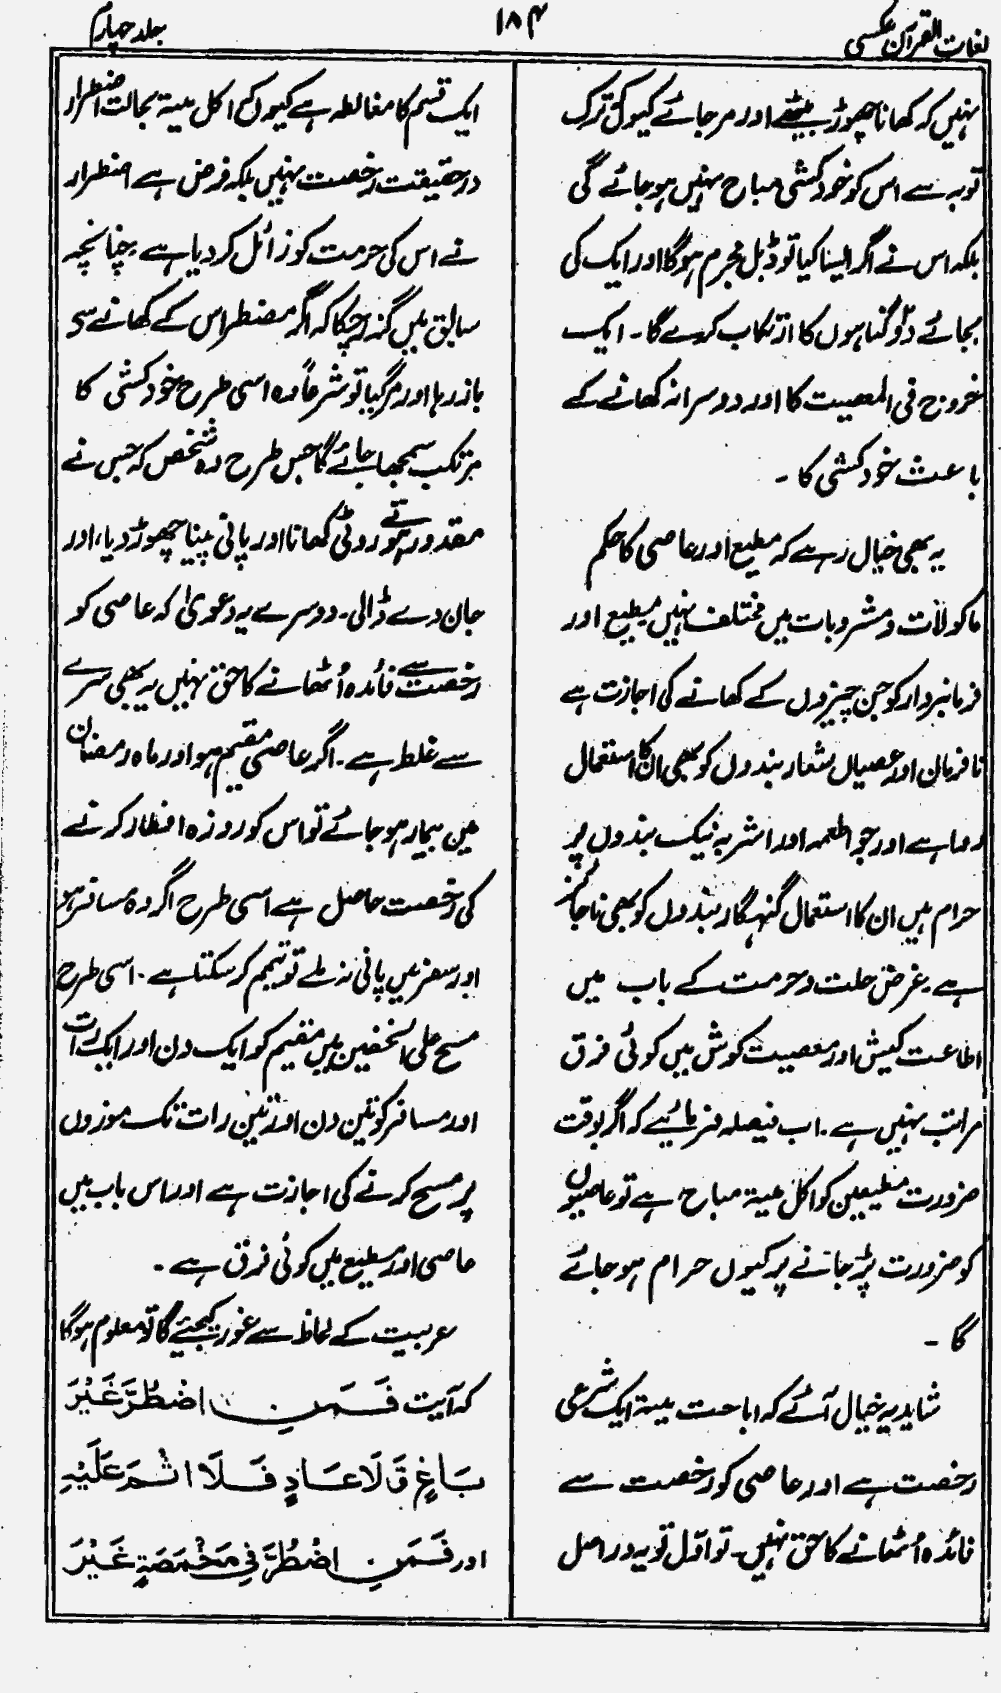 لغات القرآن عکسی
۱۸۴
جلد چہارم
نہیں کہ کھانا چھوڑ بیٹھے اور مر جائے کیوں کہ ترک
توبہ سے اس کو خود کشی مباح نہیں ہو جائے گی
بلکہ اس نے اگر ایسا کیا تو ڈبل مجرم ہوگا اور ایک کی
بجائے دو گناہوں کا ارتکاب کرے گا۔ ایک
خروج فی المعصیت کا اور دوسرا نہ کھانے کے
باعث خود کشی کا۔
یہ بھی خیال رہے کہ مطیع اور عاصی کا حکم
ماکولات و مشروبات میں مختلف نہیں مطیع اور
فرمانبردار کو جن چیزوں کے کھانے کی اجازت ہے
نافرمان اور عصیاں شعار بندوں کو بھی ان کا استعمال
روا ہے اور جو اطعمہ اور اشربہ نیک بندوں پر
حرام ہیں ان کا استعمال گنہگار بندوں کو بھی ناجائز
ہے۔ غرض حلت و حرمت کے باب میں
اطاعت کیش اور معصیت کوش میں کوئی فرق
مراتب نہیں ہے۔ اب فیصلہ فرمائیے کہ اگر بوقت
ضرورت مطیعین کو اکل میتۃ مباح ہے تو عاصیوں
کو ضرورت پڑ جانے پر کیوں حرام ہو جائے
گا۔
شاید یہ خیال آئے کہ اباحت میتۃ ایک شرعی
رخصت ہے اور عاصی کو رخصت سے
فائدہ اُٹھانے کا حق نہیں۔ تو اوّل تو یہ دراصل
ایک قسم کا مغالطہ ہے کیوں کہ اکل میتۃ بحالت اضطرار
درحقیقت رخصت نہیں بلکہ فرض ہے اضطرار
نے اس کی حرمت کو زائل کر دیا ہے۔ چنانچہ
سابق میں گزر چکا کہ اگر مضطر اس کے کھانے سے
باز رہا اور مر گیا تو شرعاً وہ اسی طرح خود کشی کا
مرتکب سمجھا جائے گا جس طرح وہ شخص کہ جس نے
مقدور ہوتے روٹی کھانا اور پانی پینا چھوڑ دیا، اور
جان دے ڈالی۔ دوسرے یہ دعویٰ کہ عاصی کو
رخصت سے فائدہ اُٹھانے کا حق نہیں یہ بھی سرے
سے غلط ہے۔ اگر عاصی مقیم ہو اور ماہ رمضان
میں بیمار ہو جائے تو اس کو روزہ افطار کرنے
کی رخصت حاصل ہے اسی طرح اگر وہ مسافر ہو
اور سفر میں پانی نہ ملے تو تیمم کر سکتا ہے۔ اسی طرح
مسح علی الخفین میں مقیم کو ایک دن اور ایک رات
اور مسافر کو تین دن اور تین رات تک موزوں
پر مسح کرنے کی اجازت ہے اور اس باب میں
عاصی اور مطیع میں کوئی فرق ہے۔
عربیت کے لحاظ سے غور کیجئے گا تو معلوم ہوگا
کہ آیت فَمَنِ اضْطُرَّ غَیْرَ
بَاغٍ وَّلَا عَادٍ فَلَا اثْمَ عَلَیْہِ
اور فَمَنِ اضْطُرَّ فِی مَخْمَصَۃٍ غَیْرَ